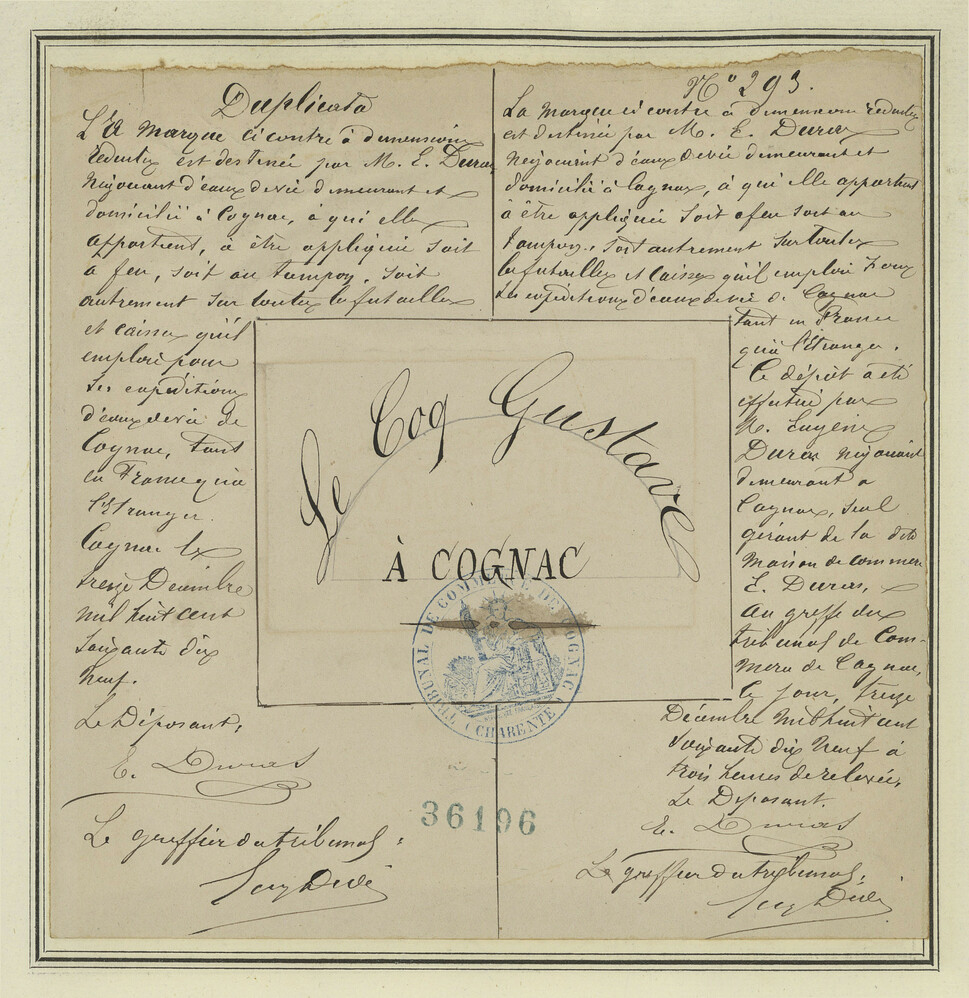 Duplicata
La marque ci contre à dimension
réduites est destinée par M. E. Duras
négociant d'eaux de vie demeurant et
domicilié à Cognac, à qui elle
appartient, à être appliquée soit
à feu, soit au tampon, soit
autrement sur toutes les futailles
et caisses qu'il
emploie pour
ses expéditions
d'eaux de vie de
Cognac, tant
en France qu'à
l'Etranger.
Cognac le
treize Décembre
mil huit cent
soixante dix
neuf.
Le Déposant,
E. Duras
Le greffier du tribunal,
N° 293.
La marque ci contre à dimension réduites
est destinée par M. E. Duras
négociant d'eaux de vie demeurant et
domicilié à Cognac, à qui elle appartient
à être appliquée soit à feu soit au
tampon, soit autrement sur toutes
les futailles et caisses qu'il emploie pour
ses expéditions d'eaux de vie de Cognac
tant en France
qu'à l'étranger.
Ce dépôt a été
effectué par
M. Eugène
Duras négociant
demeurant à
Cognac, seul
gérant de la dite
maison de commerce
E. Duras,
au greffe du
tribunal de Com-
merce de Cognac,
ce jour, treize
Décembre mil huit cent
soixante dix neuf à
trois heures de relevée.
Le Déposant.
E. Duras
Le greffier du tribunal,
Le Coq Gustave
À COGNAC
TRIBUNAL DE COMMERCE DE COGNAC
(CHARENTE)
36196